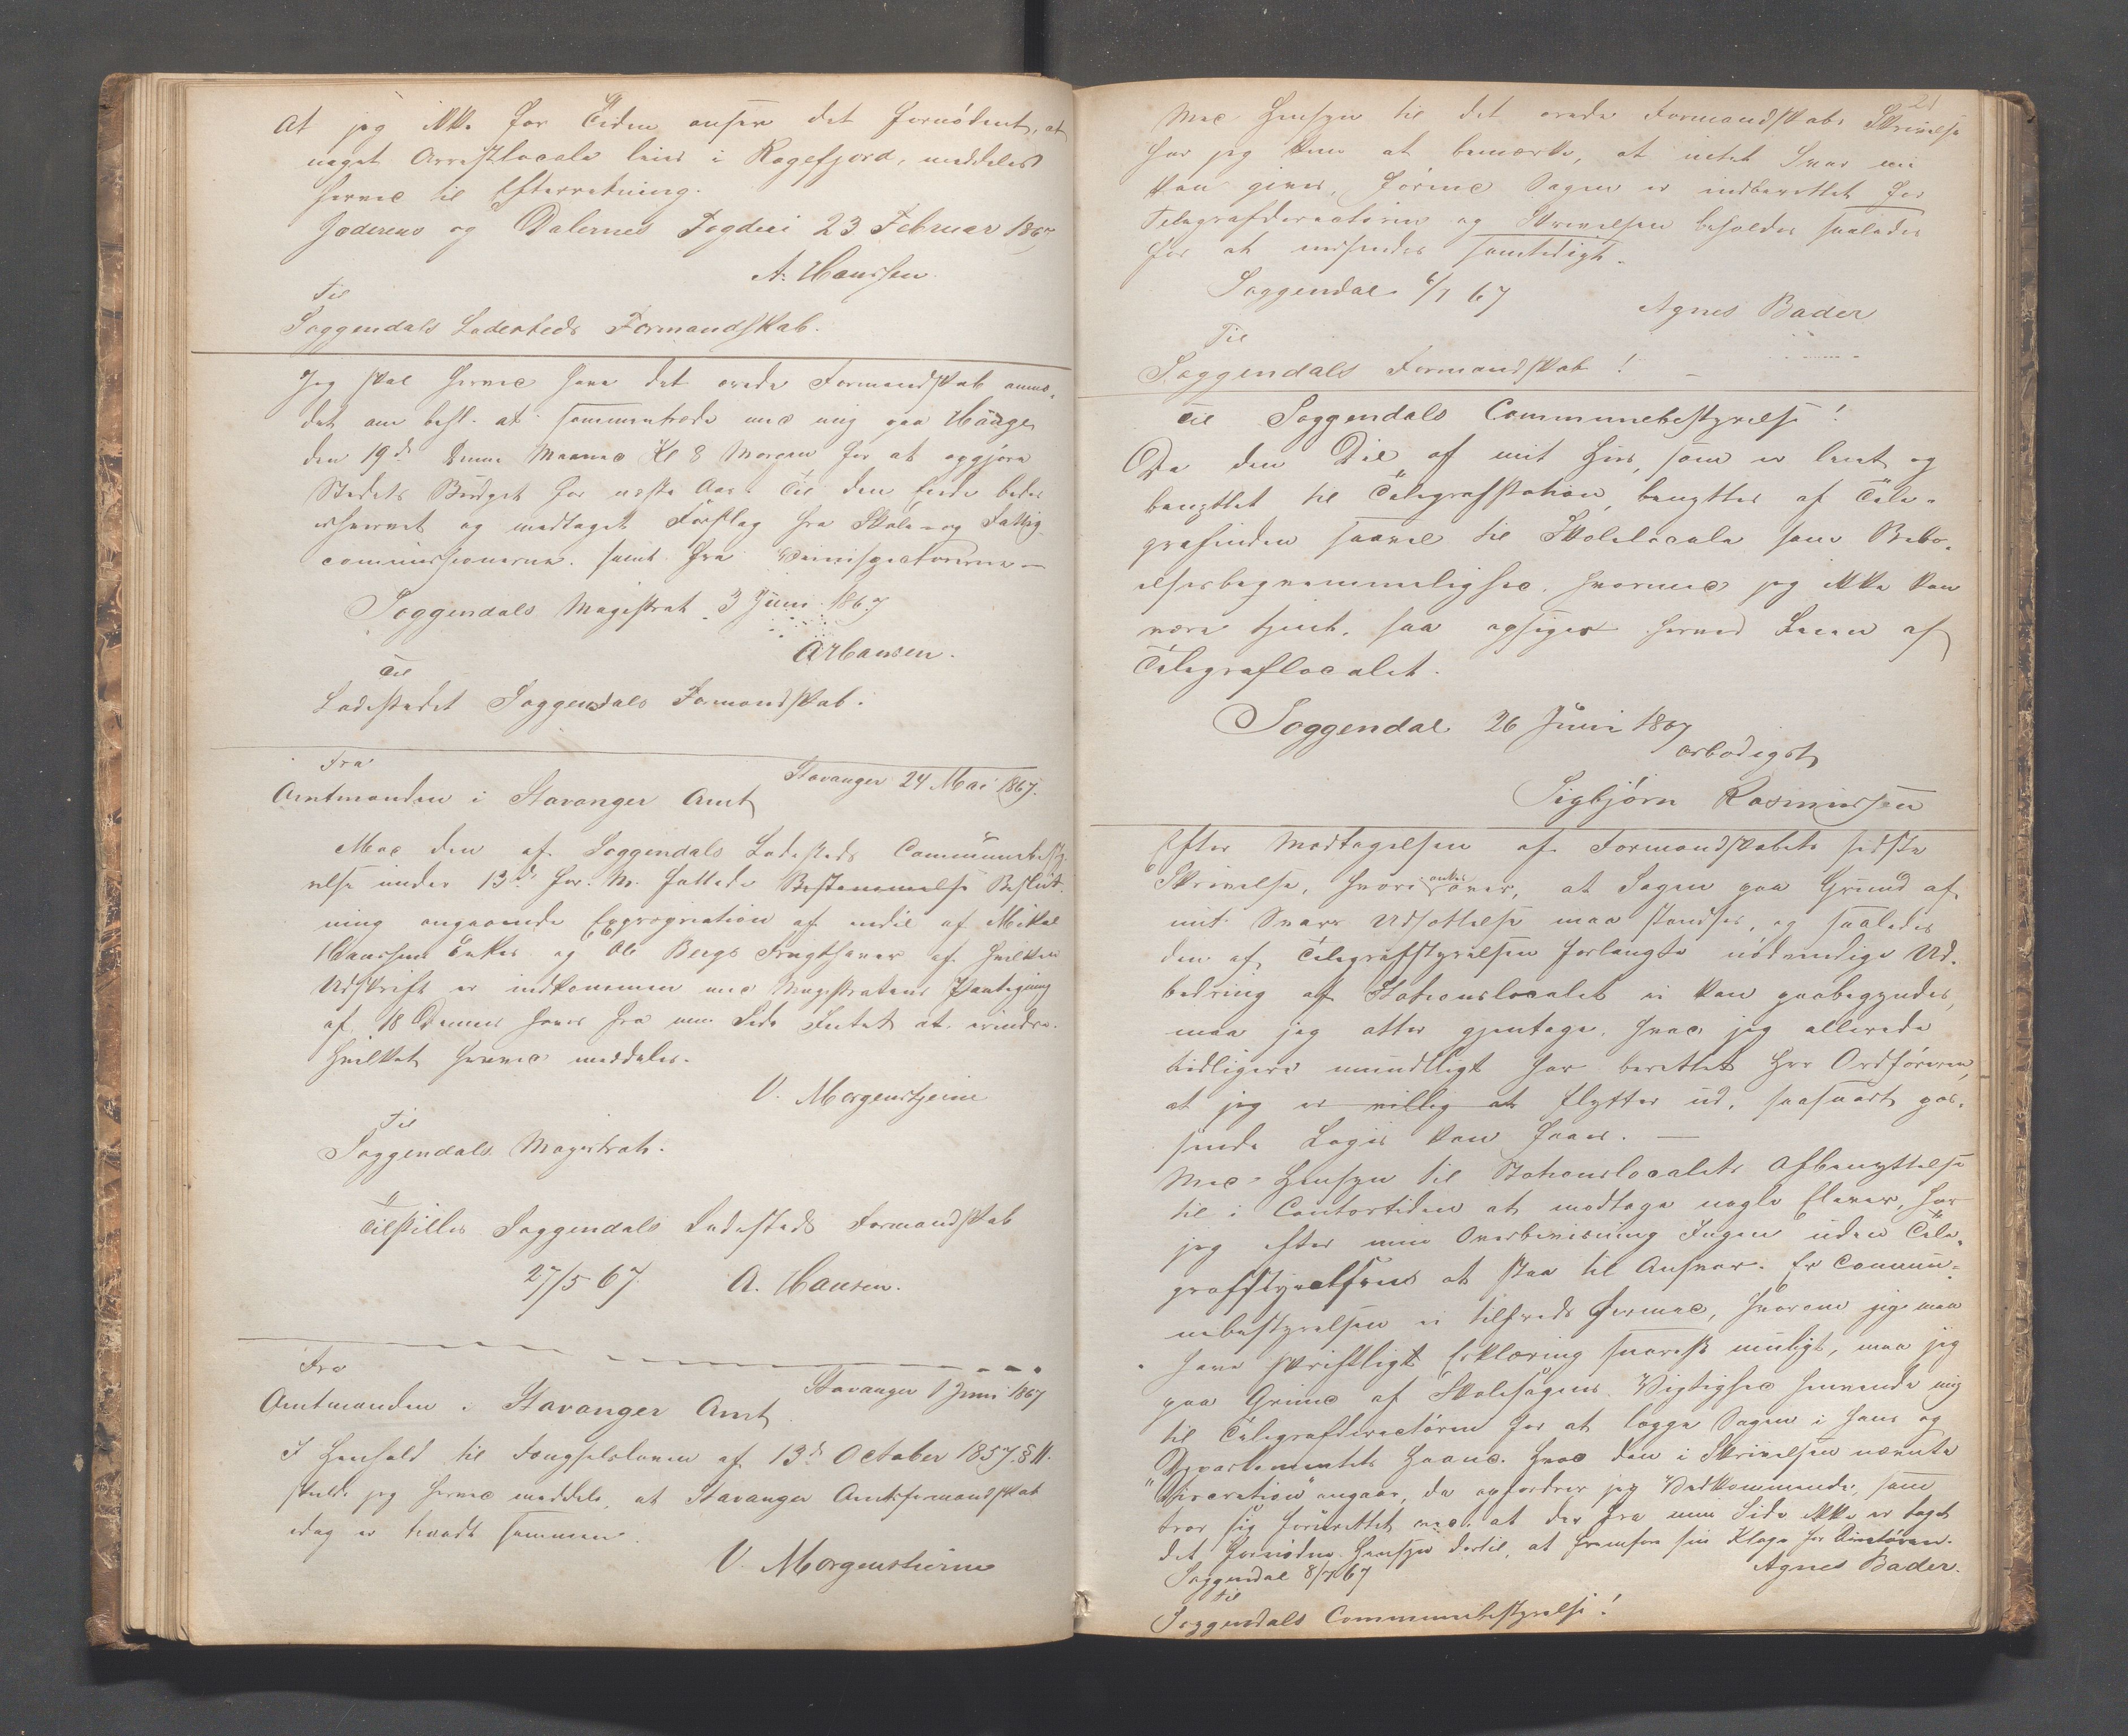 At jeg ikke for Tiden anser det fornødent, at
noget Arrestlocale leies i Rægefjord, meddeles
herved til Efterretning.
Jæderens og Dalernes Fogderi 23 Februar 1867
A. Hanssen
Til
Soggendals Ladesteds Formandskab.
Jeg skal herved have det ærede Formandskab anmo-
det om behl. at sammentræde med mig paa Hauge
den 19de denne Maaned Kl 8 Morgen for at opgjøre
Stedets Budget for næste Aar. Til den Ende bedes
erhvervet og medtaget Forslag fra Skole- og Fattig-
commissionerne samt fra Veiinspectørerne –
Soggendals Magistrat 3 Juni 1867
A Hansen.
Til
Ladestedet Soggendals Formandskab.
Fra
Amtmanden i Stavanger Amt
Stavanger 24 Mai 1867.
Mod den af Soggendals Ladesteds Communebesty-
relse under 13de for. M. fattede Bestemmelse Beslut-
ning angaaende Expropriation af endel af Mikal
Hanssens Enkes og Ole Bergs Frugthaver af hvilken
Udskrift er indkommen med Magistratens Paategning
af 18 Dennes haves fra min Side Intet at erindre.
Hvilket herved meddeles.
V. Morgenstjerne
Til
Soggendals Magistrat.
Tilstilles Soggendals Ladesteds Formandskab
27/5 67. A. Hansen.
Fra
Amtmanden i Stavanger Amt
Stavanger 1 Juni 1867
I Henhold til Fængselsloven af 13de October 1857 § 11.
skulde jeg herved meddele, at Stavanger Amtsformandskab
idag er traadt sammen.
V. Morgenstierne
21
Med Hensyn til det ærede Formandskabs Skrivelse
har jeg kun at bemærke, at intet Svar nu
kan gives, førend Sagen er indberettet for
Telegrafdirectøren og Skrivelsen beholdes saaledes
for at indsendes samtidigt.
Soggendal 6/7 67
Agnes Bader
Til
Soggendals Formandskab! –
Til Soggendals Communebestyrelse!
Da den Del af mit Hus, som er leiet og
benyttet til Telegrafstation, benyttes af Tele-
grafinden saavel til Skolelocale som Bebo-
elsesbeqvemmelighed, hvormed jeg ikke kan
være tjent, saa opsiges herved Leien af
Telegraflocalet.
Soggendal 26 Juni 1867
ærbødigst
Sigbjørn Rasmussen
Efter Modtagelsen af Formandskabets sidste
Skrivelse, hvori ankes over, at Sagen paa Grund af
mit Svars Udsættelse maa standses, og saaledes
den af Telegrafstyrelsen forlangte nødvendige Ud-
bedring af Stationslocalet ei kan paabegyndes,
maa jeg atter gjentage, hvad jeg allerede
tidligere mundtligt har berettet Hr Ordføreren,
at jeg er villig at flytter ud, saasnart pas-
sende Logis kan faaes. –
Med Hensyn til Stationslocalets Afbenyttelse
til i Contortiden at modtage nogle Elever, har
jeg efter min Overbevisning Ingen uden Tele-
grafstyrelsens at staa til Ansvar. Er Commu-
nebestyrelsen ei tilfreds hermed, hvorom jeg maa
have skriftligt Erklæring snarest muligt, maa jeg
paa Grund af Skolesagens Vigtighed henvende mig
til Telegrafdirectøren for at lægge Sagen i hans og
Departementets Haand. Hvad den i Skrivelsen nævnte
"Discretion" angaar, da opfordrer jeg Vedkommende, som
tror sig forurettet ved at der fra min Side ikke er taget
det fornødne Hensyn dertil, at fremføre sin Klage for Directøren.
Soggendal 8/7 67
Agnes Bader.
Til
Soggendals Communebestyrelse!